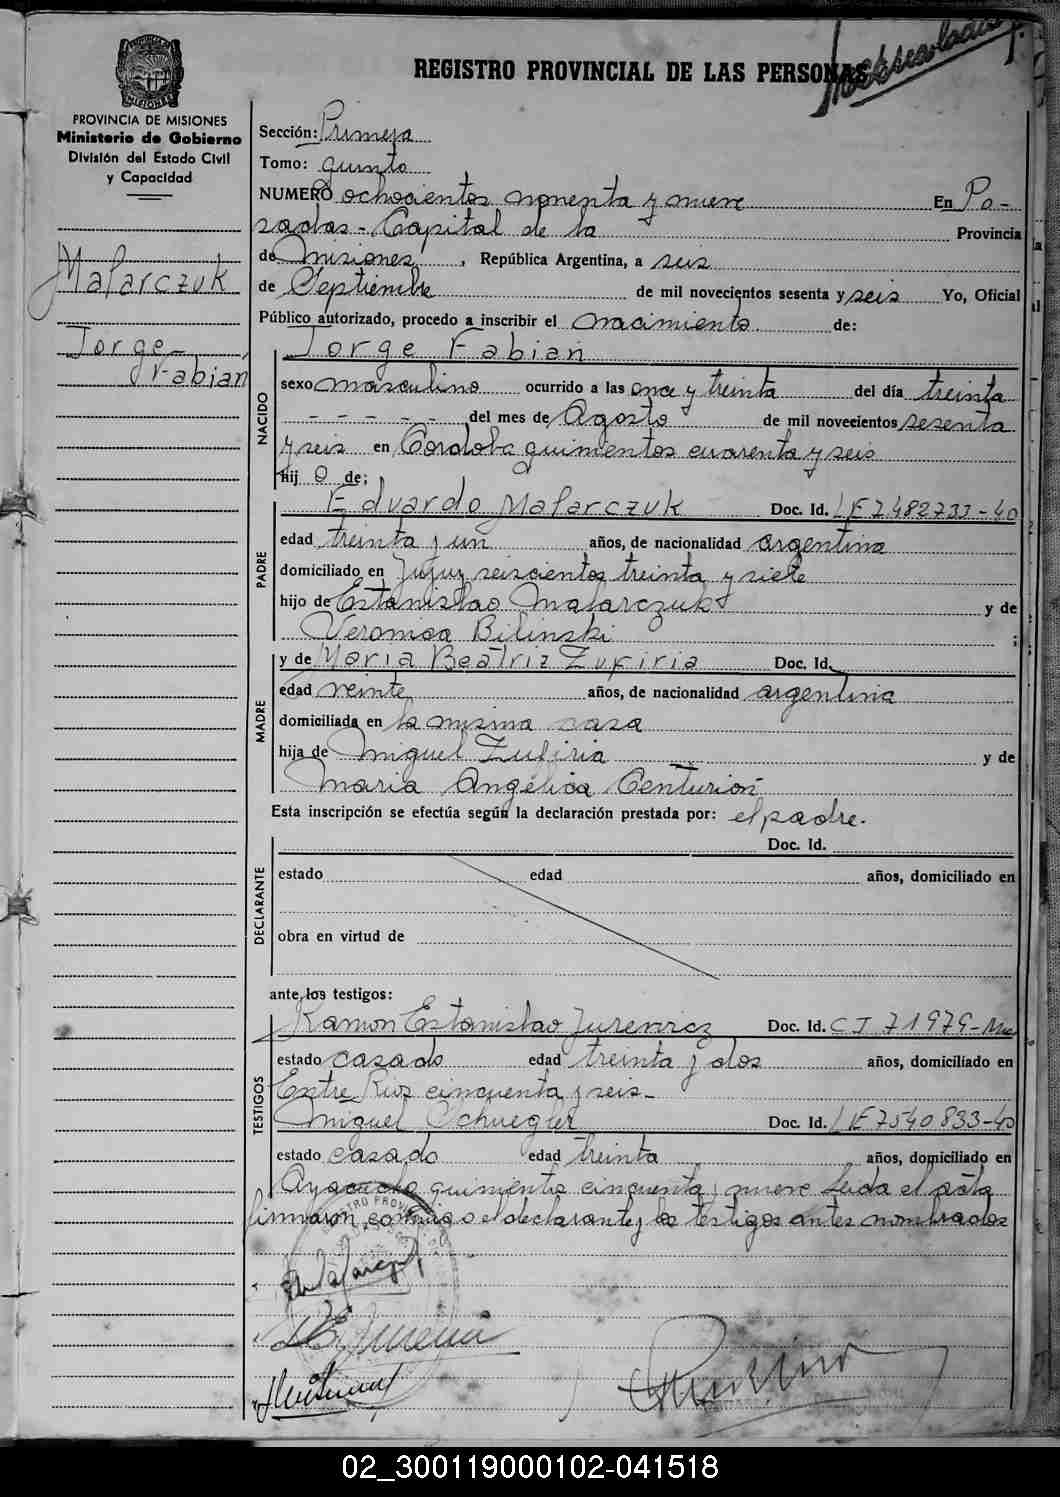 REGISTRO PROVINCIAL DE LAS PERSONAS
PROVINCIA DE MISIONES
Ministerio de Gobierno
División del Estado Civil
y Capacidad
Malarczuk
Jorge
Fabián
Sección: Primera
Tomo: quinto
NUMERO ochocientos noventa y nueve En Po-
sadas - Capital de la Provincia
de Misiones, República Argentina, a seis
de Septiembre de mil novecientos sesenta y seis Yo, Oficial
Público autorizado, procedo a inscribir el nacimiento de:
Jorge Fabián
NACIDO
sexo masculino ocurrido a las once y treinta del día treinta
- - - - - - del mes de Agosto de mil novecientos sesenta
y seis en Cordoba quinientos cuarenta y seis
hijo de:
PADRE
Eduardo Malarczuk Doc. Id. LE 7482733-40
edad treinta y un años, de nacionalidad argentina
domiciliado en Jujuy seiscientos treinta y siete
hijo de Estanislao Malarczuk y de
Veronica Bilinski ;
MADRE
y de Maria Beatriz Zufiria Doc. Id.
edad veinte años, de nacionalidad argentina
domiciliada en la misma casa
hija de Miguel Zufiria y de
Maria Angélica Centurión
Esta inscripción se efectúa según la declaración prestada por: el padre.
DECLARANTE
Doc. Id.
estado edad años, domiciliado en
obra en virtud de
ante los testigos:
TESTIGOS
Ramon Estanislao Jurewicz Doc. Id. CI 71979-
estado casado edad treinta y dos años, domiciliado en
Entre Rios cincuenta y seis-
Miguel Schuegler Doc. Id. LE 7540833-40
estado casado edad treinta años, domiciliado en
Ayacucho quinientos cincuenta y nueve Leida el acta
firmaron conmigo el declarante y los testigos antes nombrados
02_300119000102-041518